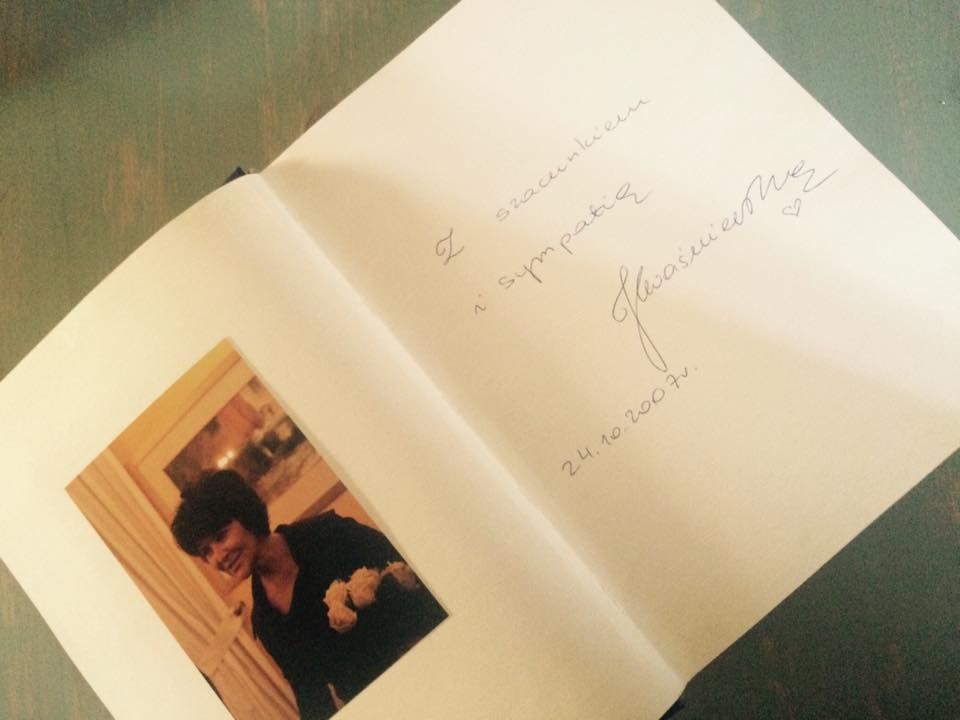 Z szacunkiem
i sympatią
JKwaśniewska
24.10.2007r.